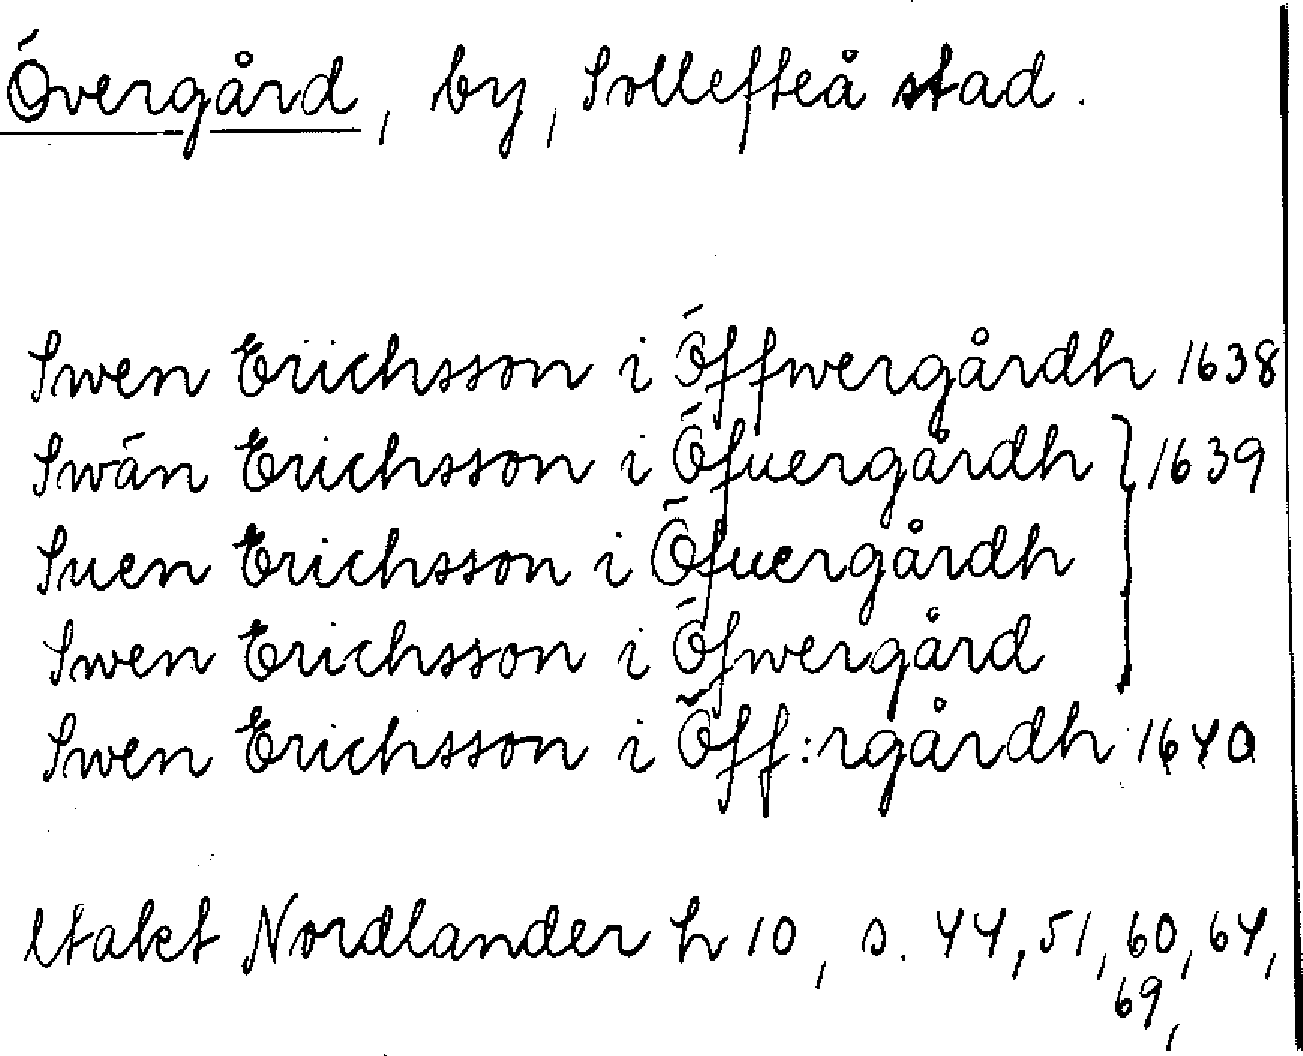 Övergård, by, Sollefteå stad.
Swen Erichsson i Öffwergårdh 1638
Swän Erichsson i Öfuergårdh } 1639
Suen Erichsson i Öfuergårdh
Swen Erichsson i Öfwergård
Swen Erichsson i Öff:rgårdh 1640
Nordlander h 10, s. 44, 51, 60, 64,
69,